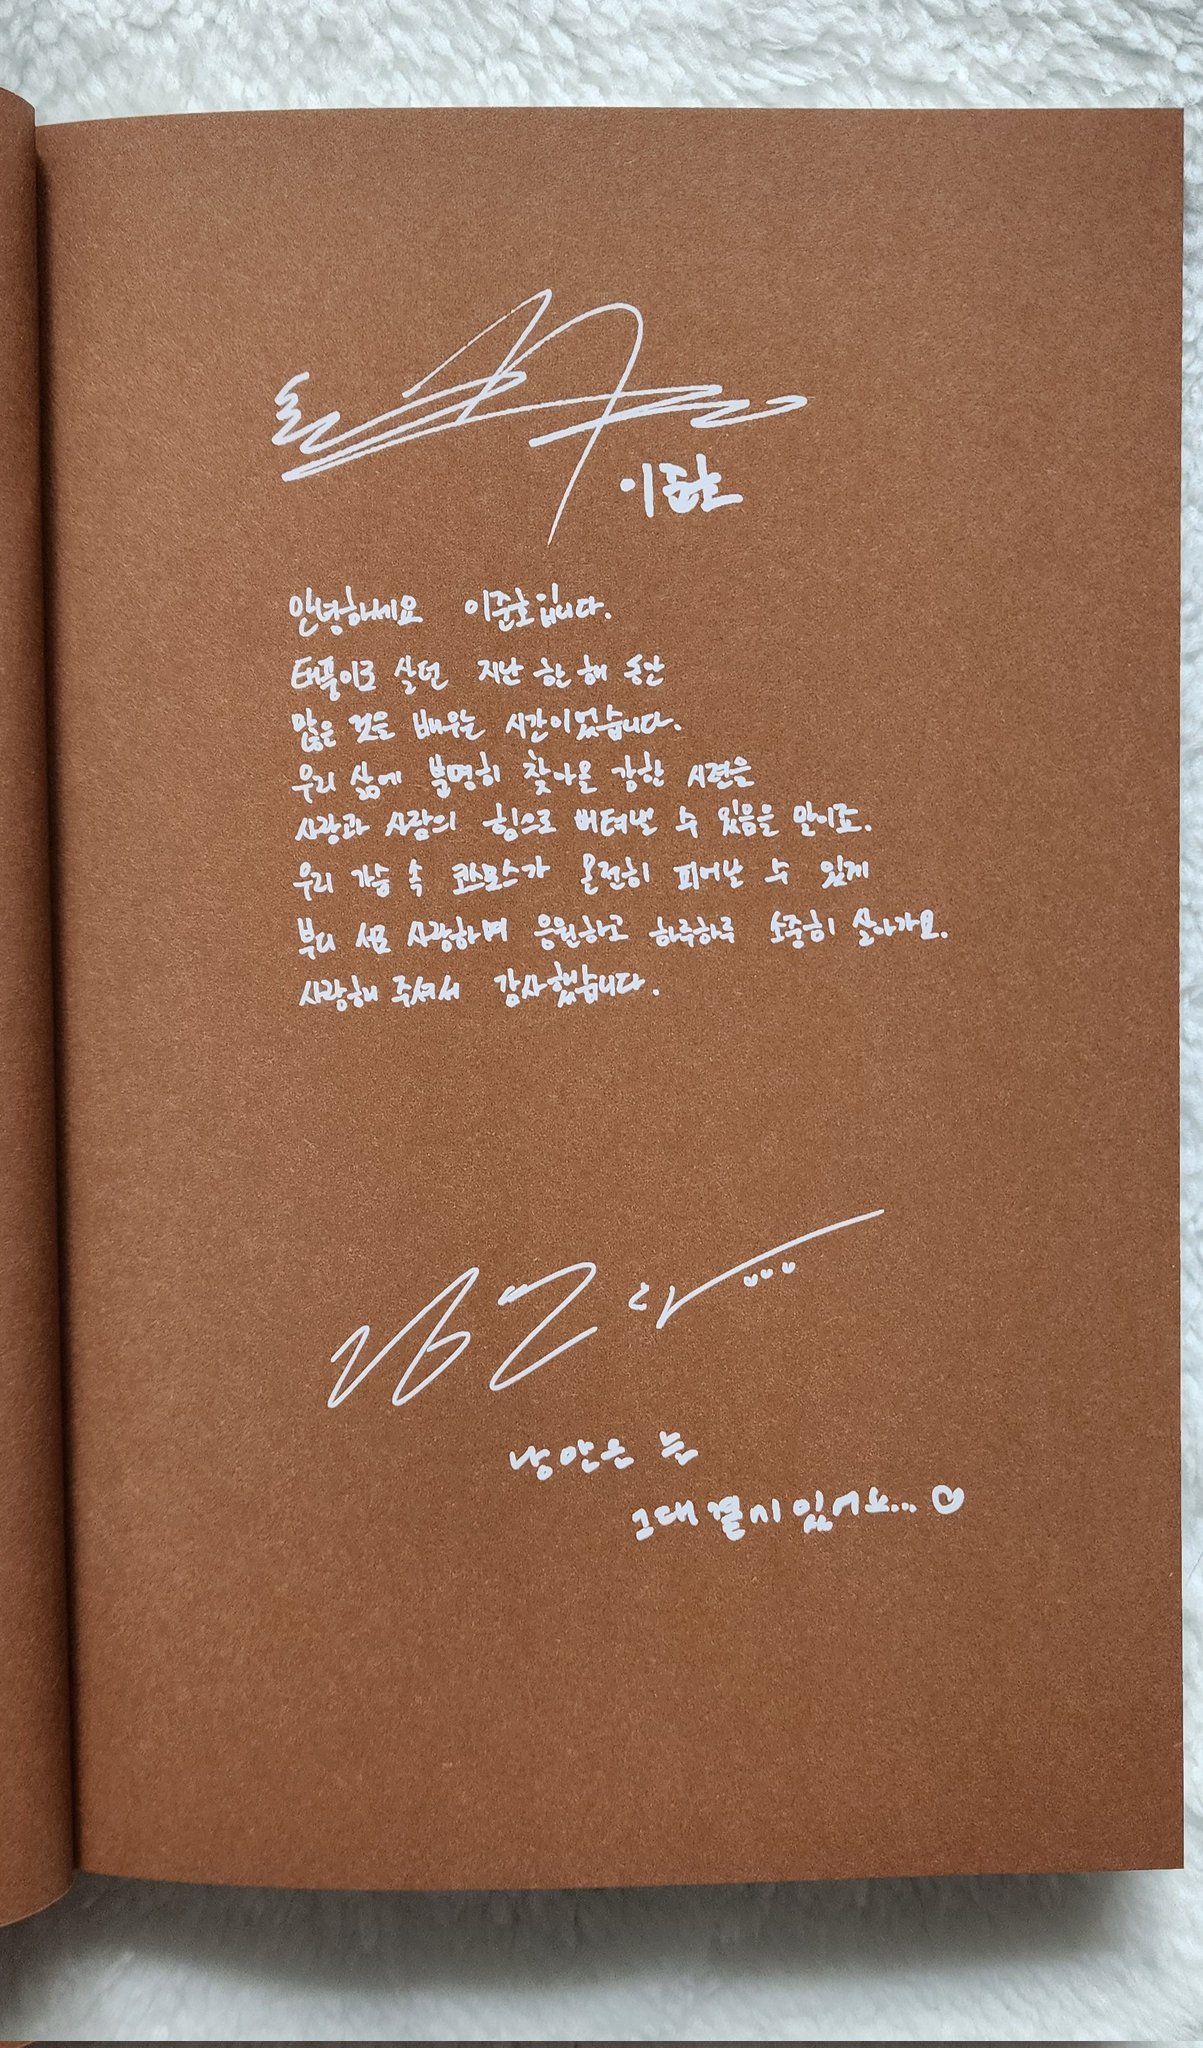 이준호
안녕하세요 이준호입니다.
태풍이로 살던 지난 한 해 동안
많은 것을 배우는 시간이었습니다.
우리 삶에 불명히 찾아올 강한 시련을
사랑과 사람의 힘으로 버텨낼 수 있음을 말이죠.
우리 가슴 속 코스모스가 온전히 피어날 수 있게
부디 서로 사랑하며 응원하고 하루하루 소중히 살아가요.
사랑해 주셔서 감사했습니다.
낭만은 늘
그대 곁에 있어요...